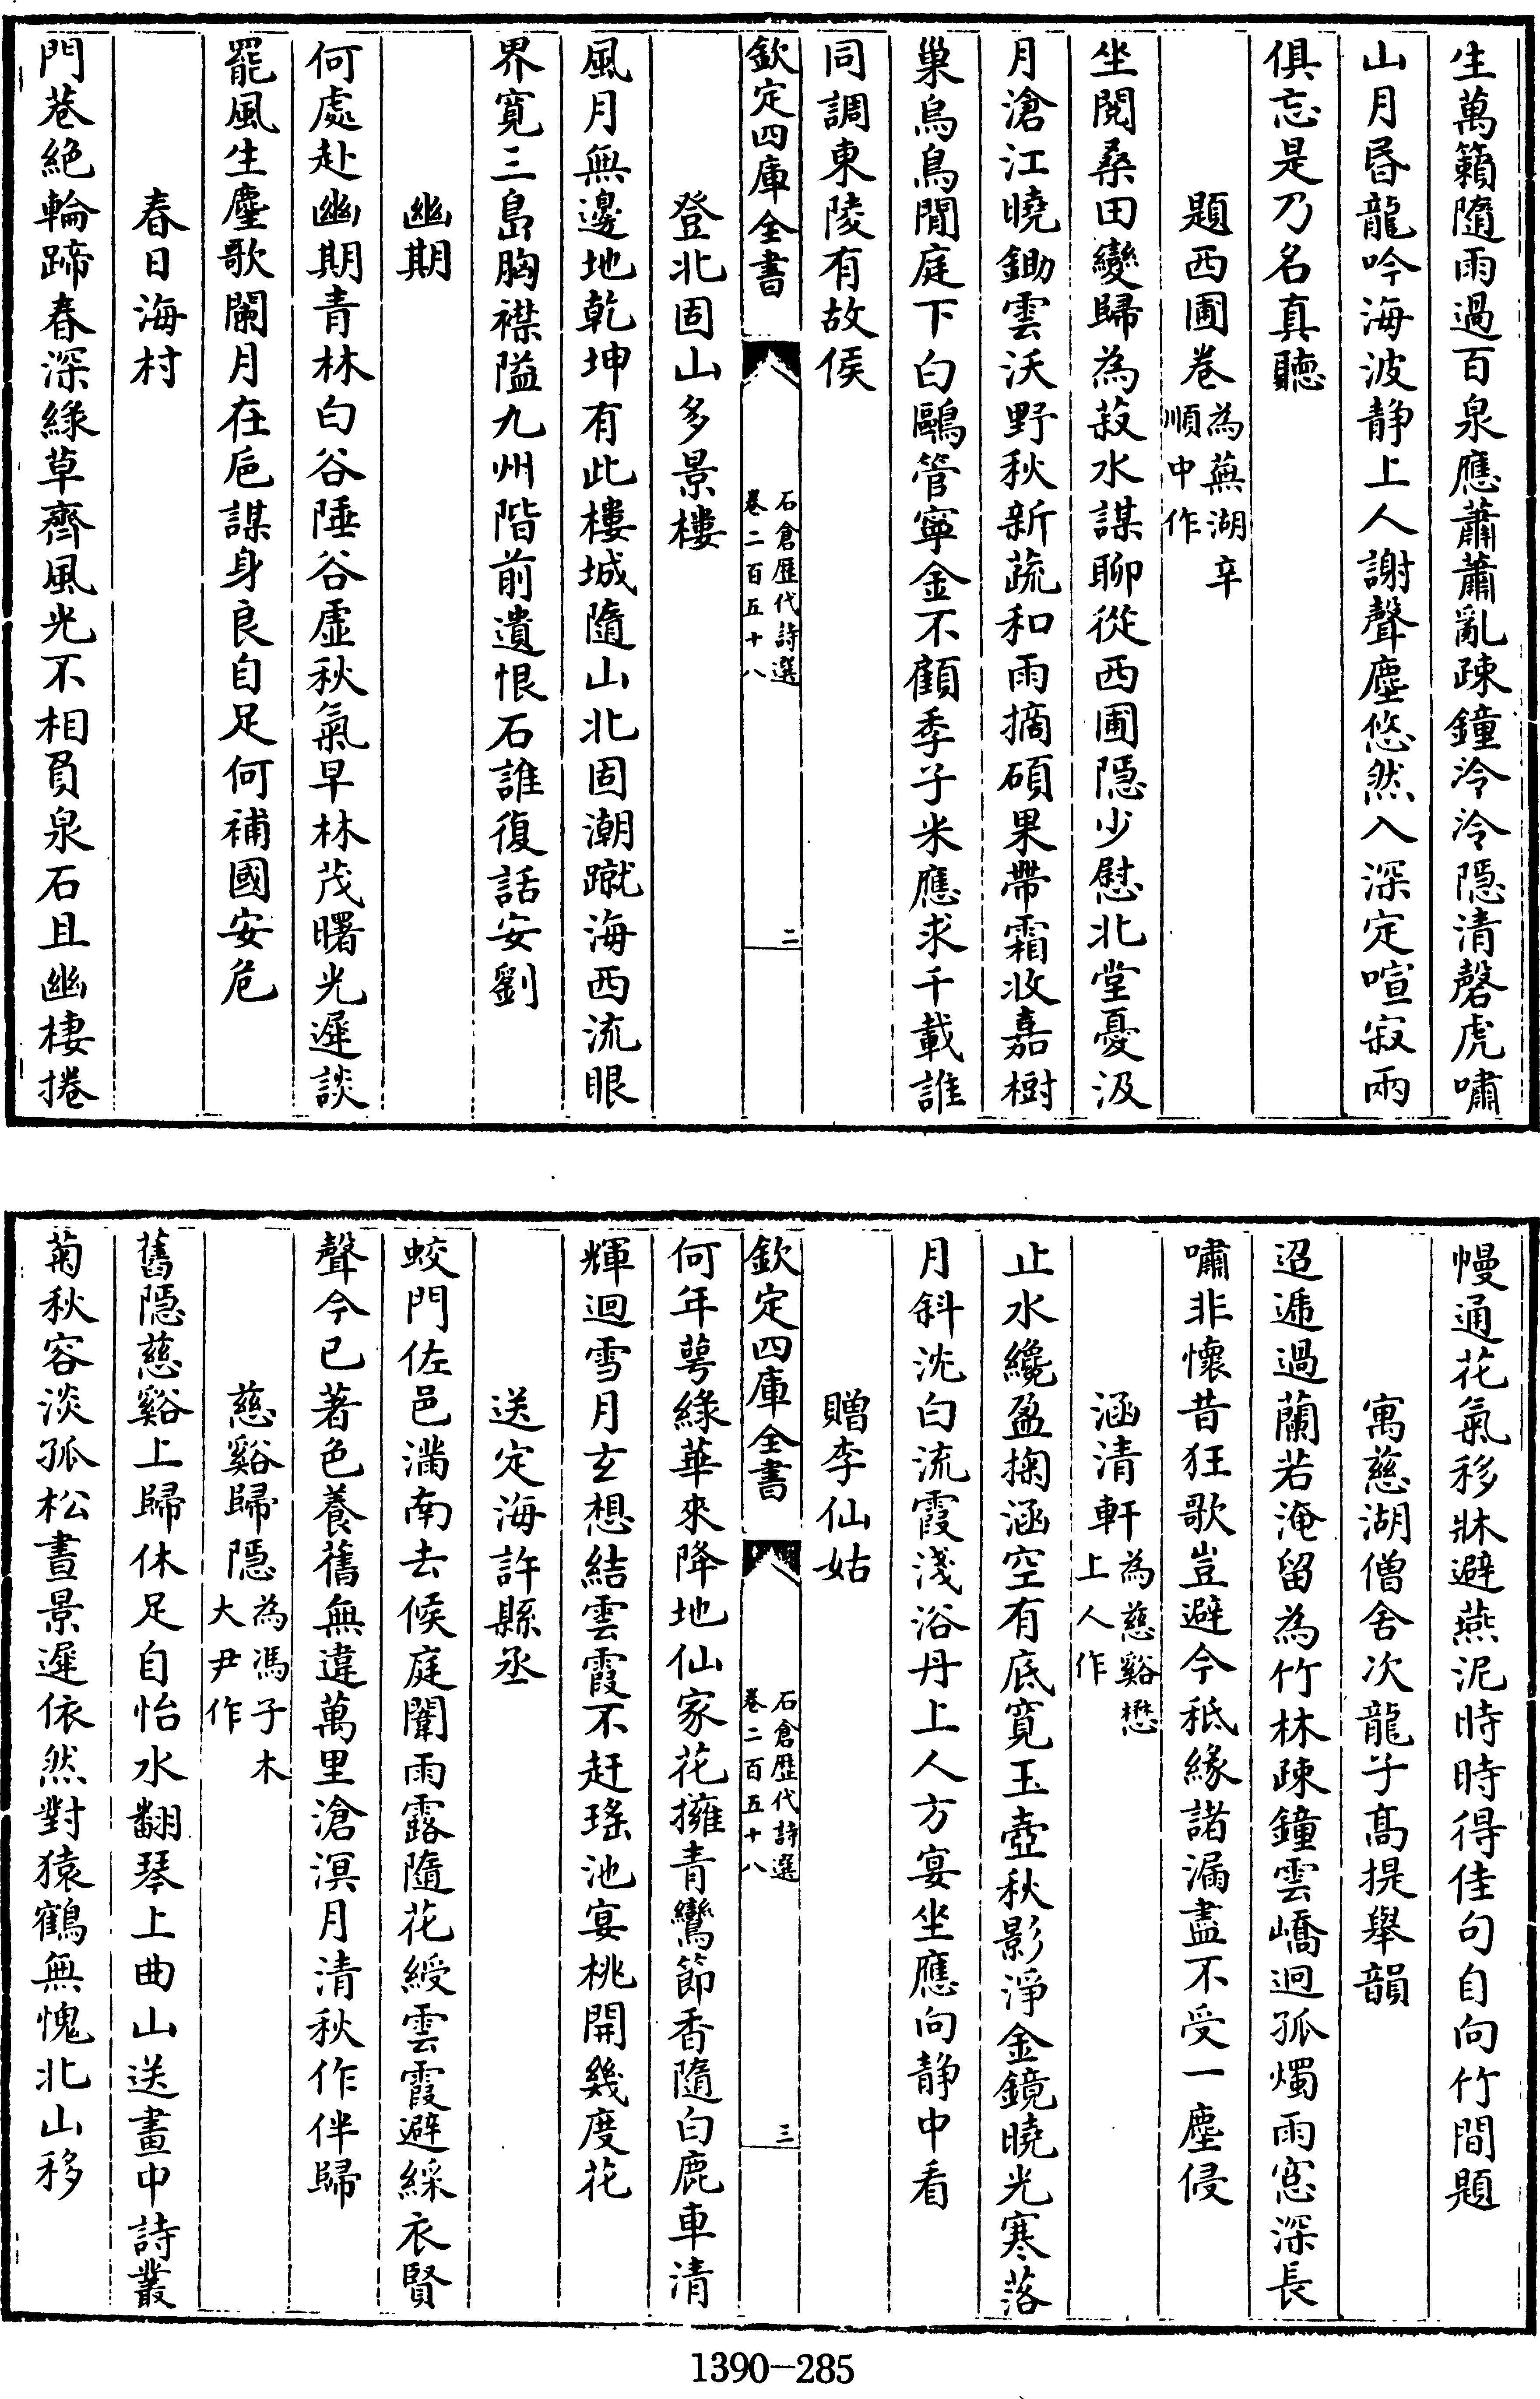 生萬籟隨雨過百泉應蕭蕭亂疎鐘泠泠隱清磬虎嘯
山月昏龍吟海波静上人謝聲塵悠然入深定喧寂兩
俱忘是乃名真聽
題西圃卷為蕪湖辛順中作
坐閱桑田變歸為菽水謀聊從西圃隱少慰北堂憂汲
月滄江曉鋤雲沃野秋新蔬和雨摘碩果帶霜收嘉樹
巢烏鳥閒庭下白鷗管寧金不顧季子米應求千載誰
同調東陵有故侯
欽定四庫全書
石倉歷代詩選
卷二百五十八
二
登北固山多景樓
風月無邊地乾坤有此樓城隨山北固潮蹴海西流眼
界寬三島胸襟隘九州階前遺恨石誰復話安劉
幽期
何處赴幽期青林白谷陲谷虛秋氣早林茂曙光遲談
罷風生麈歌闌月在巵謀身良自足何補國安危
春日海村
門巷絶輪蹄春深緑草齊風光不相負泉石且幽棲捲
幔通花氣移牀避燕泥時時得佳句自向竹間題
寓慈湖僧舍次龍子髙提舉韻
迢遞過蘭若淹留為竹林疎鐘雲嶠迥孤燭雨窓深長
嘯非懷昔狂歌豈避今秖緣諸漏盡不受一塵侵
涵清軒為慈谿懋上人作
止水纔盈掬涵空有底寛玉壺秋影淨金鏡曉光寒落
月斜沈白流霞淺浴丹上人方宴坐應向静中看
贈李仙姑
欽定四庫全書
石倉歷代詩選
卷二百五十八
三
何年萼緑華來降地仙家花擁青鸞節香隨白鹿車清
輝迴雪月玄想結雲霞不赶瑤池宴桃開幾度花
送定海許縣丞
蛟門佐邑滿南去候庭闈雨露隨花綬雲霞避綵衣賢
聲今已著色養舊無違萬里滄溟月清秋作伴歸
慈谿歸隱為馮子木大尹作
舊隱慈谿上歸休足自怡水翻琴上曲山送畫中詩叢
菊秋容淡孤松晝景遲依然對猿鶴無愧北山移
1390-285